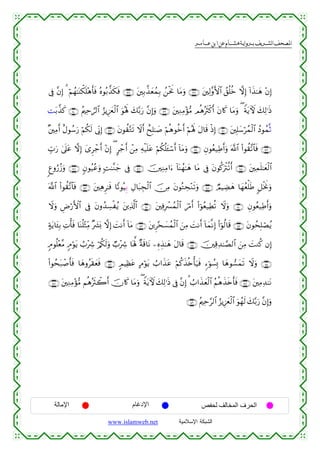 المصحف الشريف برواية هشام عن ابن عامر
إِنْ هَٰذَا إِلَّا خُلُقُ ٱلْأَوَّلِينَ وَمَا نَحْنُ بِمُعَذَّبِينَ فَكَذَّبُوهُ فَأَهْلَكْنَٰهُمْ ۚ إِنَّ فِى
ذَٰلِكَ لَءَايَةً ۖ وَمَا كَانَ أَكْثَرُهُم مُّؤْمِنِينَ وَإِنَّ رَبَّكَ لَهُوَ ٱلْعَزِيزُ ٱلرَّحِيمُ كَذَّبَت
ثَّمُودُ ٱلْمُرْسَلِينَ إِذْ قَالَ لَهُمْ أَخُوهُمْ صَٰلِحٌ أَلَا تَتَّقُونَ إِنِّى لَكُمْ رَسُولٌ أَمِينٌ
فَٱتَّقُوا۟ ٱللَّهَ وَأَطِيعُونِ وَمَا أَسْـَٔلُكُمْ عَلَيْهِ مِنْ أَجْرٍ ۖ إِنْ أَجْرِىَ إِلَّا عَلَىٰ رَبِّ
ٱلْعَٰلَمِينَ أَتُتْرَكُونَ فِى مَا هَٰهُنَا ءَامِنِينَ فِى جَنَّٰتٍ وَعُيُونٍ وَزُرُوعٍ
وَنَخْلٍ طَلْعُهَا هَضِيمٌ وَتَنْحِتُونَ مِنَ ٱلْجِبَالِ بُيُوتًا فَٰرِهِينَ فَٱتَّقُوا۟ ٱللَّهَ
وَأَطِيعُونِ وَلَا تُطِيعُوا۟ أَمْرَ ٱلْمُسْرِفِينَ ٱلَّذِينَ يُفْسِدُونَ فِى ٱلْأَرْضِ وَلَا
يُصْلِحُونَ قَالُوا۟ إِنَّمَا أَنتَ مِنَ ٱلْمُسَحَّرِينَ مَا أَنتَ إِلَّا بَشَرٌ مِّثْلُنَا فَأْتِ بِـَٔايَةٍ
إِن كُنتَ مِنَ ٱلصَّٰدِقِينَ قَالَ هَٰذِهِۦ نَاقَةٌ لَّهَا شِرْبٌ وَلَكُمْ شِرْبُ يَوْمٍ مَّعْلُومٍ
وَلَا تَمَسُّوهَا بِسُوءٍ فَيَأْخُذَكُمْ عَذَابُ يَوْمٍ عَظِيمٍ فَعَقَرُوهَا فَأَصْبَحُوا۟
نَٰدِمِينَ فَأَخَذَهُمُ ٱلْعَذَابُ ۗ إِنَّ فِى ذَٰلِكَ لَءَايَةً ۖ وَمَا كَانَ أَكْثَرُهُم مُّؤْمِنِينَ
وَإِنَّ رَبَّكَ لَهُوَ ٱلْعَزِيزُ ٱلرَّحِيمُ
الحرف المخالف لحفص الإدغام الإمالة
الشبكة الإسلامية www.islamweb.net